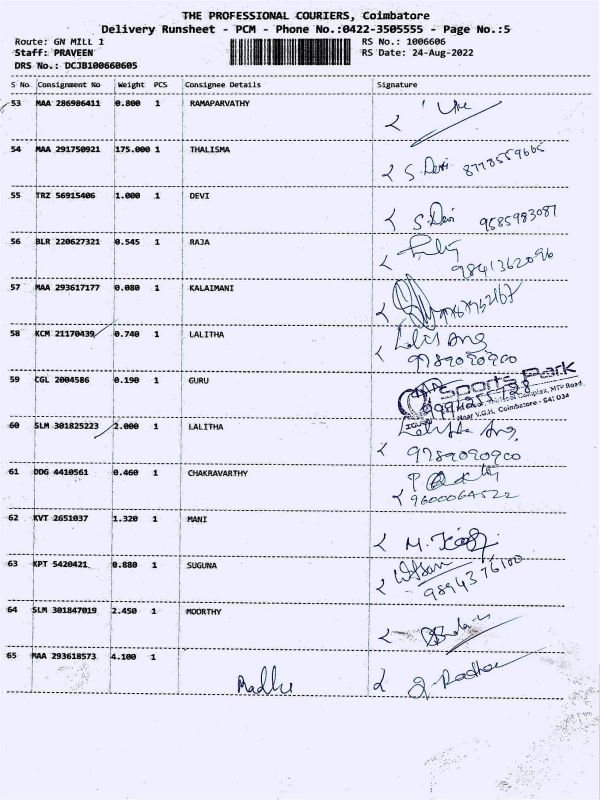 THE PROFESSIONAL COURIERS, Coimbatore
Delivery Runsheet - PCM - Phone No.:0422-3505555 - Page No.:5
Route: GN MILL 1
RS No.: 1006606
Staff: PRAVEEN
RS Date: 24-Aug-2022
DRS No.: DCJB100660605
S No Consignment No Weight PCS Consignee Details Signature
53 MAA 286986411 0.800 1 RAMAPARVATHY
54 MAA 291750921 175.000 1 THALISMA
S. Devi 8778559665
55 TRZ 56915406 1.000 1 DEVI
S. Devi 9585983087
56 BLR 220627321 0.545 1 RAJA
9841362096
57 MAA 293617177 0.080 1 KALAIMANI
58 KCM 21170439 0.740 1 LALITHA
9789090900
59 CGL 2004586 0.190 1 GURU
Sports Park
Complex, MTP Road
Near V.G.H. Coimbatore - 641 034
60 SLM 301825223 2.000 1 LALITHA
9789090900
61 DDG 4410561 0.460 1 CHAKRAVARTHY
9600064522
62 KVT 2651037 1.320 1 MANI
63 KPT 5420421 0.880 1 SUGUNA
9894376100
64 SLM 301847019 2.450 1 MOORTHY
65 MAA 293618573 4.100 1
Radhu